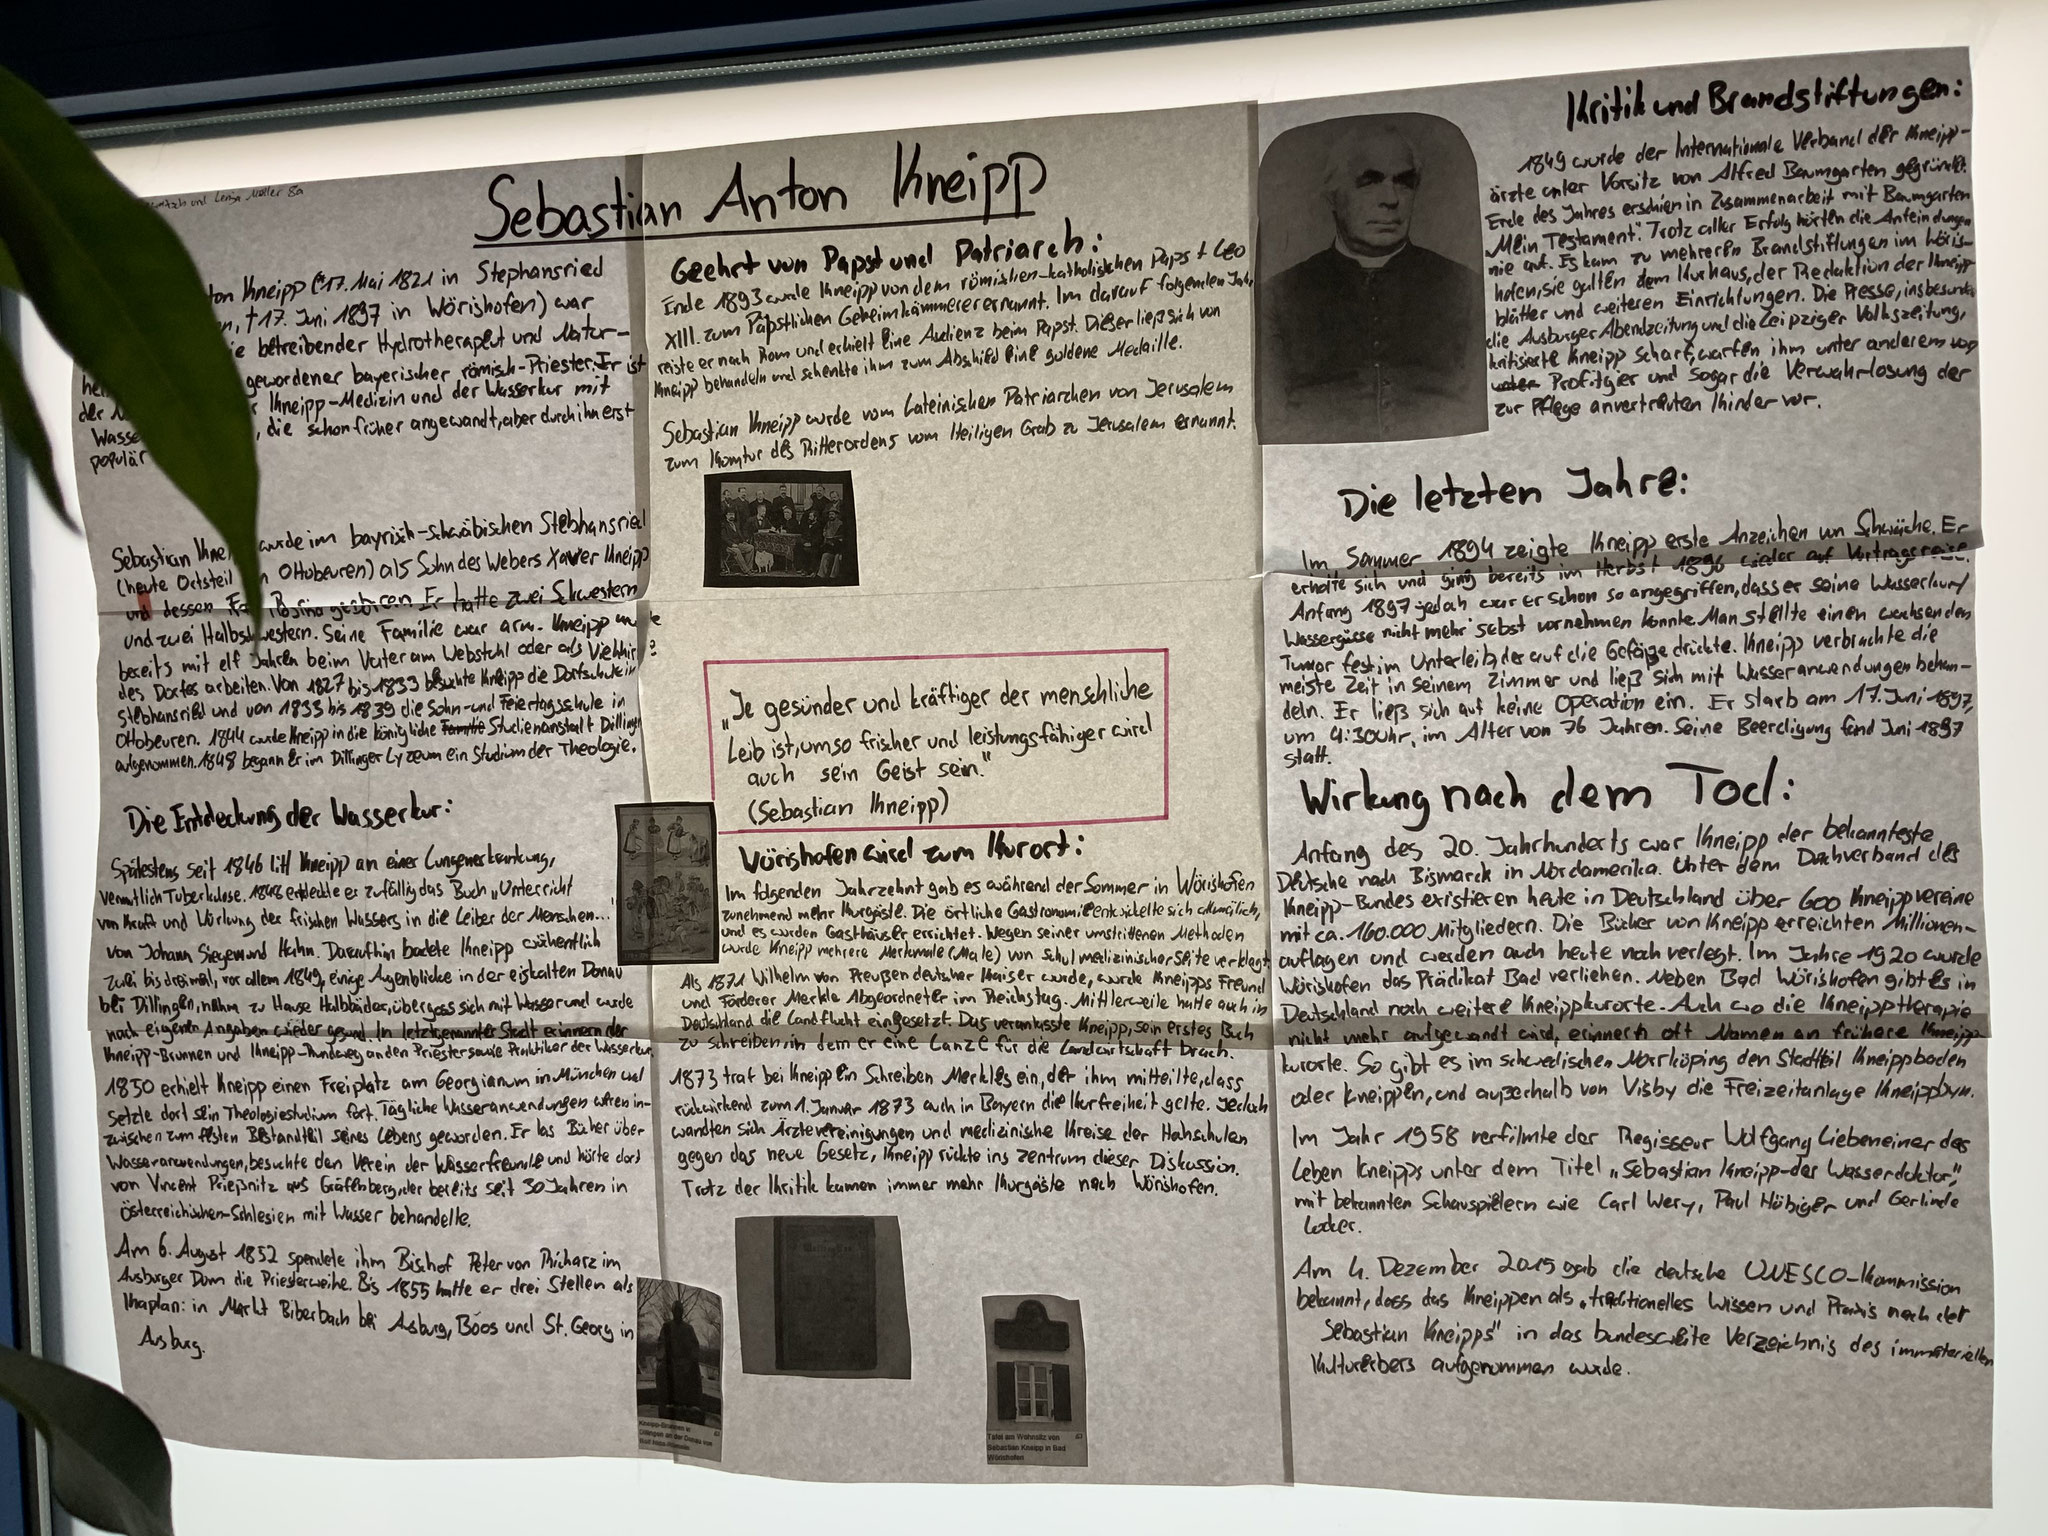 und Lenja Müller 8a
Sebastian Anton Kneipp
Kneipp (*17. Mai 1821 in Stephansried
†17. Juni 1897 in Wörishofen) war
betreibender Hydrotherapeut und Natur-
gewordener bayerischer römisch-Priester. Er ist
Kneipp-Medizin und der Wasserkur mit
die schon früher angewandt, aber durch ihn erst
populär
Sebastian wurde im bayrisch-schwäbischen Stebhansried
(heute Ortsteil Ottobeuren) als Sohn des Webers Xaver Kneipp
und dessen Rosina geboren. Er hatte zwei Schwestern
und zwei Halbschwestern. Seine Familie war arm. Kneipp
bereits mit elf Jahren beim Vater am Webstuhl oder als
des Dorfes arbeiten. Von 1827 bis 1833 besuchte Kneipp die Dorfschule in
Stebhansried und von 1833 bis 1839 die Sohn- und Feiertagsschule in
Ottobeuren. 1844 wurde Kneipp in die königliche Studienanstalt Dillingen
aufgenommen. 1848 begann er im Dillinger Lyzeum ein Studium der Theologie.
Die Entdeckung der Wasserkur:
Spätestens seit 1846 litt Kneipp an einer Lungenerkrankung,
vermutlich Tuberkulose. entdeckte er zufällig das Buch „Unterricht
von Kraft und Würkung des frischen Wassers in die Leiber der Menschen..."
von Johann Siegmund Hahn. Daraufhin badete Kneipp wöhentlich
zwei bis dreimal, vor allem 1849, einige Augenblicke in der eiskalten Donau
bei Dillingen, nahm zu Hause Halbbäder, übergoss sich mit Wasser und wurde
nach eigenen Angaben wieder gesund. In letztgenannter Stadt erinnern der
Kneipp-Brunnen und Kneipp-Rundweg an den Priester sowie Praktiker der Wasserkur.
1850 erhielt Kneipp einen Freiplatz am Georgianum in München und
setzte dort sein Theologiestudium fort. Tägliche Wasseranwendungen waren in-
zwischen zum festen Bestandteil seines Lebens geworden. Er las Bücher über
Wasseranwendungen, besuchte den Verein der Wasserfreunde und hörte dort
von Vincent Prießnitz aus Gräfenberg, der bereits seit 30 Jahren in
österreichischen-Schlesien mit Wasser behandelte.
Am 6. August 1852 spendete ihm Bischof Peter von Richarz im
Ausburger Dom die Priesterweihe. Bis 1855 hatte er drei Stellen als
Kaplan: in Markt Biberbach bei Ausburg, Boos und St. Georg in
Ausburg.
Geehrt von Papst und Patriarch:
Ende 1893 wurde Kneipp von dem römischen-katholischen Papst Leo
XIII. zum Päpstlichen Geheimkämmerer ernannt. Im darauf folgenden Jahr
reiste er nach Rom und erhielt eine Audienz beim Papst. Dieser ließ sich von
Kneipp behandeln und schenkte ihm zum Abschied eine goldene Medaille.
Sebastian Kneipp wurde vom Lateinischen Patriarchen von Jerusalem
zum Komtur des Ritterordens vom Heiligen Grab zu Jerusalem ernannt.
„Je gesünder und kräftiger der menschliche
Leib ist, umso frischer und leistungsfähiger wird
auch sein Geist sein."
(Sebastian Kneipp)
Wörishofen wird zum Kurort:
Im folgenden Jahrzehnt gab es während der Sommer in Wörishofen
zunehmend mehr Kurgäste. Die örtliche Gastronomie entwickelte sich allmählich,
und es wurden Gasthäuser errichtet. Wegen seiner umstrittenen Methoden
wurde Kneipp mehrere Merkmale (Male) von Schulmedizinischer Seite verklagt
Als 1871 Wilhelm von Preußen deutscher Kaiser wurde, wurde Kneipps Freund
und Förderer Merkle Abgeordneter im Reichstag. Mittlerweile hatte auch in
Deutschland die Landflucht eingesetzt. Das veranlasste Kneipp, sein erstes Buch
zu schreiben, in dem er eine Lanze für die Landwirtschaft brach.
1873 traf bei Kneipp ein Schreiben Merkles ein, der ihm mitteilte, dass
rückwirkend zum 1. Januar 1873 auch in Bayern die Kurfreiheit gelte. Jedoch
wandten sich Ärztevereinigungen und medizinische Kreise der Hohschulen
gegen das neue Gesetz, Kneipp rückte ins Zentrum dieser Diskussion.
Trotz der Kritik kamen immer mehr Kurgäste nach Wörishofen.
Kneipp-Brunnen in
Dillingen an der Donau von
Tafel am Wohnsitz von
Sebastian Kneipp in Bad
Wörishofen
Kritik und Brandstiftungen:
1849 wurde der Internationale Verband der Kneipp-
ärzte unter Vorsitz von Alfred Baumgarten gegründet.
Ende des Jahres erschien in Zusammenarbeit mit Baumgarten
„Mein Testament". Trotz aller Erfolg hörten die Anfeindungen
nie auf. Es kam zu mehreren Brandstiftungen im Wöris-
hofen, sie galten dem Kurhaus, der Redaktion der Kneipp
blätter und weiteren Einrichtungen. Die Presse, insbesondere
die Ausburger Abendzeitung und die Leipziger Volkszeitung,
kritisierte Kneipp scharf, warfen ihm unter anderem vor
Profitgier und sogar die Verwahrlosung der
zur Pflege anvertrauten Kinder vor.
Die letzten Jahre:
Im Sommer 1894 zeigte Kneipp erste Anzeichen von Schwäche. Er
erholte sich und ging bereits im Herbst 1896 wieder auf Vortragsreise.
Anfang 1897 jedoh war er schon so angegriffen, dass er seine Wasserkur/
Wassergüsse nicht mehr selbst vornehmen konnte. Man stellte einen wachsenden
Tumor fest im Unterleib, der auf die Gefäße drückte. Kneipp verbrachte die
meiste Zeit in seinem Zimmer und ließ sich mit Wasseranwendungen behan-
deln. Er ließ sich auf keine Operation ein. Er starb am 17. Juni 1897,
um 4:30Uhr, im Alter von 76 Jahren. Seine Beerdigung fand Juni 1897
statt.
Wirkung nach dem Tod:
Anfang des 20. Jahrhunderts war Kneipp der bekannteste
Deutsche nach Bismarck in Nordamerika. Unter dem Dachverband des
Kneipp-Bundes existieren heute in Deutschland über 600 Kneippvereine
mit ca. 160.000 Mitgliedern. Die Bücher von Kneipp erreichten Millionen-
auflagen und werden auch heute noch verlegt. Im Jahre 1920 wurde
Wörishofen das Prädikat Bad verliehen. Neben Bad Wörishofen gibt es in
Deutschland noch weitere Kneippkurorte. Auch wo die Kneipptherapie
nicht mehr aufgewandt wird, erinnern oft Namen an frühere Kneipp
kurorte. So gibt es im schwedischen Norrköping den Stadtteil Kneippbaden
oder Kneippen, und außerhalb von Visby die Freizeitanlage Kneippbyn.
Im Jahr 1958 verfilmte der Regisseur Wolfgang Liebeneiner das
Leben Kneipps unter dem Titel „Sebastian Kneipp-der Wasserdoktor",
mit bekannten Schauspielern wie Carl Wery, Paul Höbiger und Gerlinde
Locker.
Am 4. Dezember 2015 gab die deutsche UNESCO-Kommission
bekannt, dass das Kneippen als „traditionelles Wissen und Praxis nach der
Sebastian Kneipps" in das bundesweite Verzeichnis des immateriellen
Kulturerbers aufgenommen wurde.